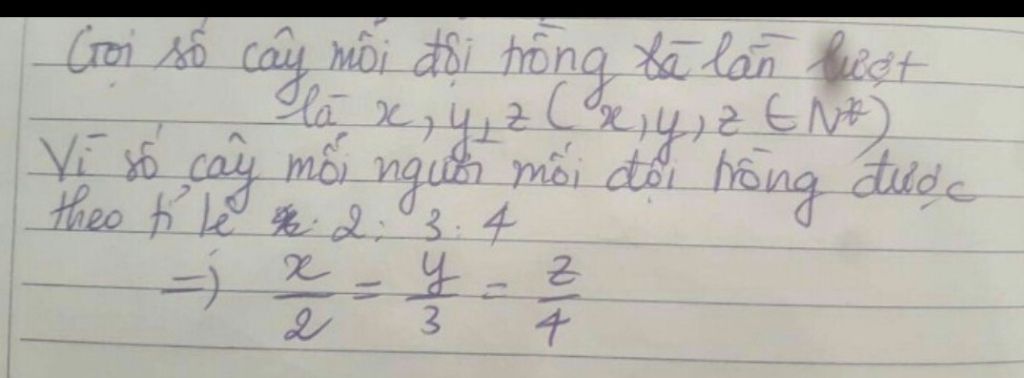 Gọi số cây mỗi đội trồng là lần lượt
là x, y, z ( x, y, z ∈ N*)
Vì số cây mỗi người mỗi đội trồng được
theo tỉ lệ 2 : 3 : 4
=) x/2 = y/3 = z/4